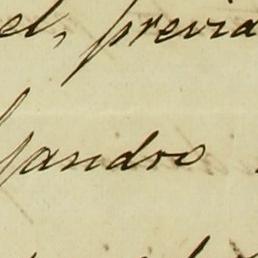 el, previa
jandro